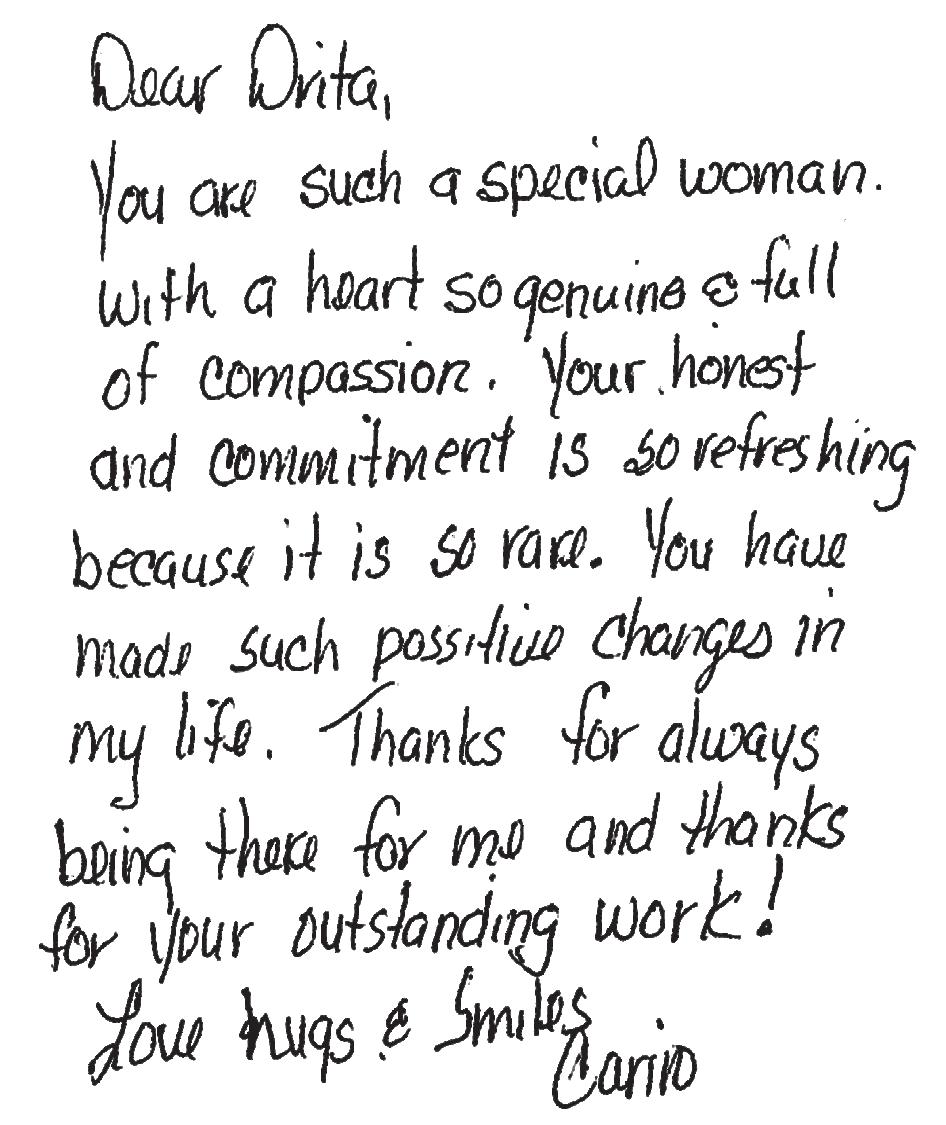 Dear Drita,
You are such a special woman.
with a heart so genuine & full
of compassion. Your honest
and commitment is so refreshing
because it is so rare. You have
made such possitive changes in
my life. Thanks for always
being there for me and thanks
for your outstanding work!
Love hugs & Smiles